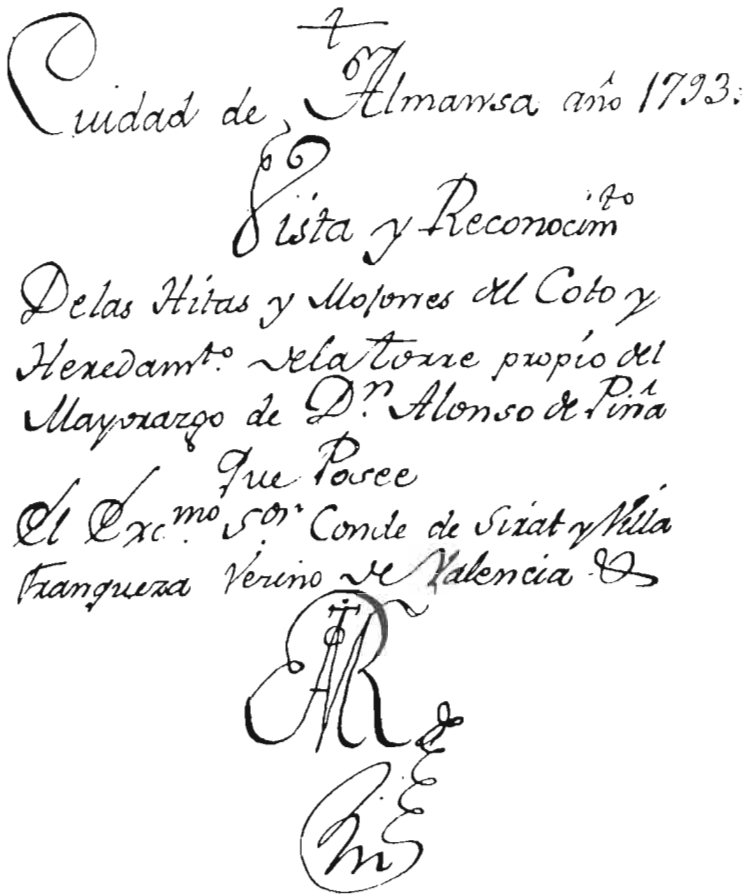 Cuidad de Almansa año 1793.
Vista y Reconocim.to
Delas Hitas y Mojones del Coto y
Heredam.to dela torre propio del
Mayorazgo de D.n Alonso de Piña
que Posee
El Exc.mo S.or Conde de Sirat y Villa
franqueza Vezino de Valencia &